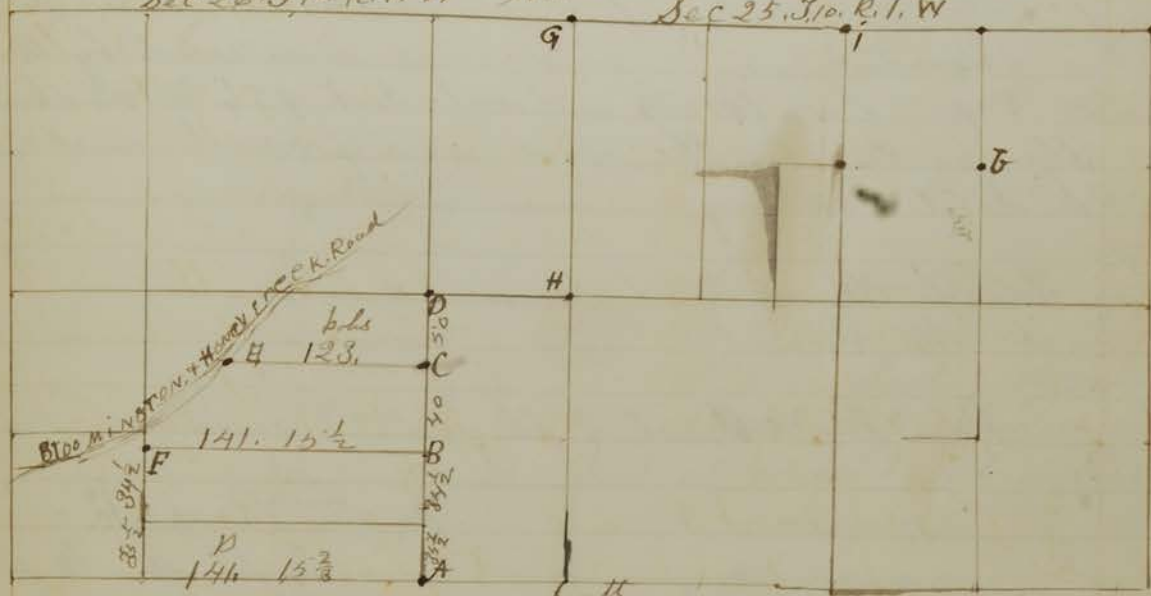 Sec 25. T. 10. R. 1. W
G
i
G
Bloomington. & Honey creek. Road
H
D
50
E
123.
C
40
141. 15 1/2
B
F
34 1/2
34 1/2
35 1/2
P
141. 15 2/3
A